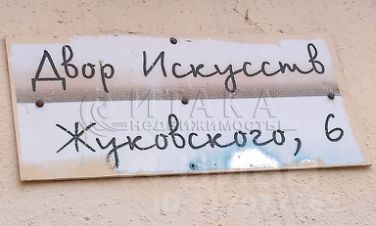 Двор Искусств
ИТАКА
НЕДВИЖИМОСТЬ
Жуковского, 6